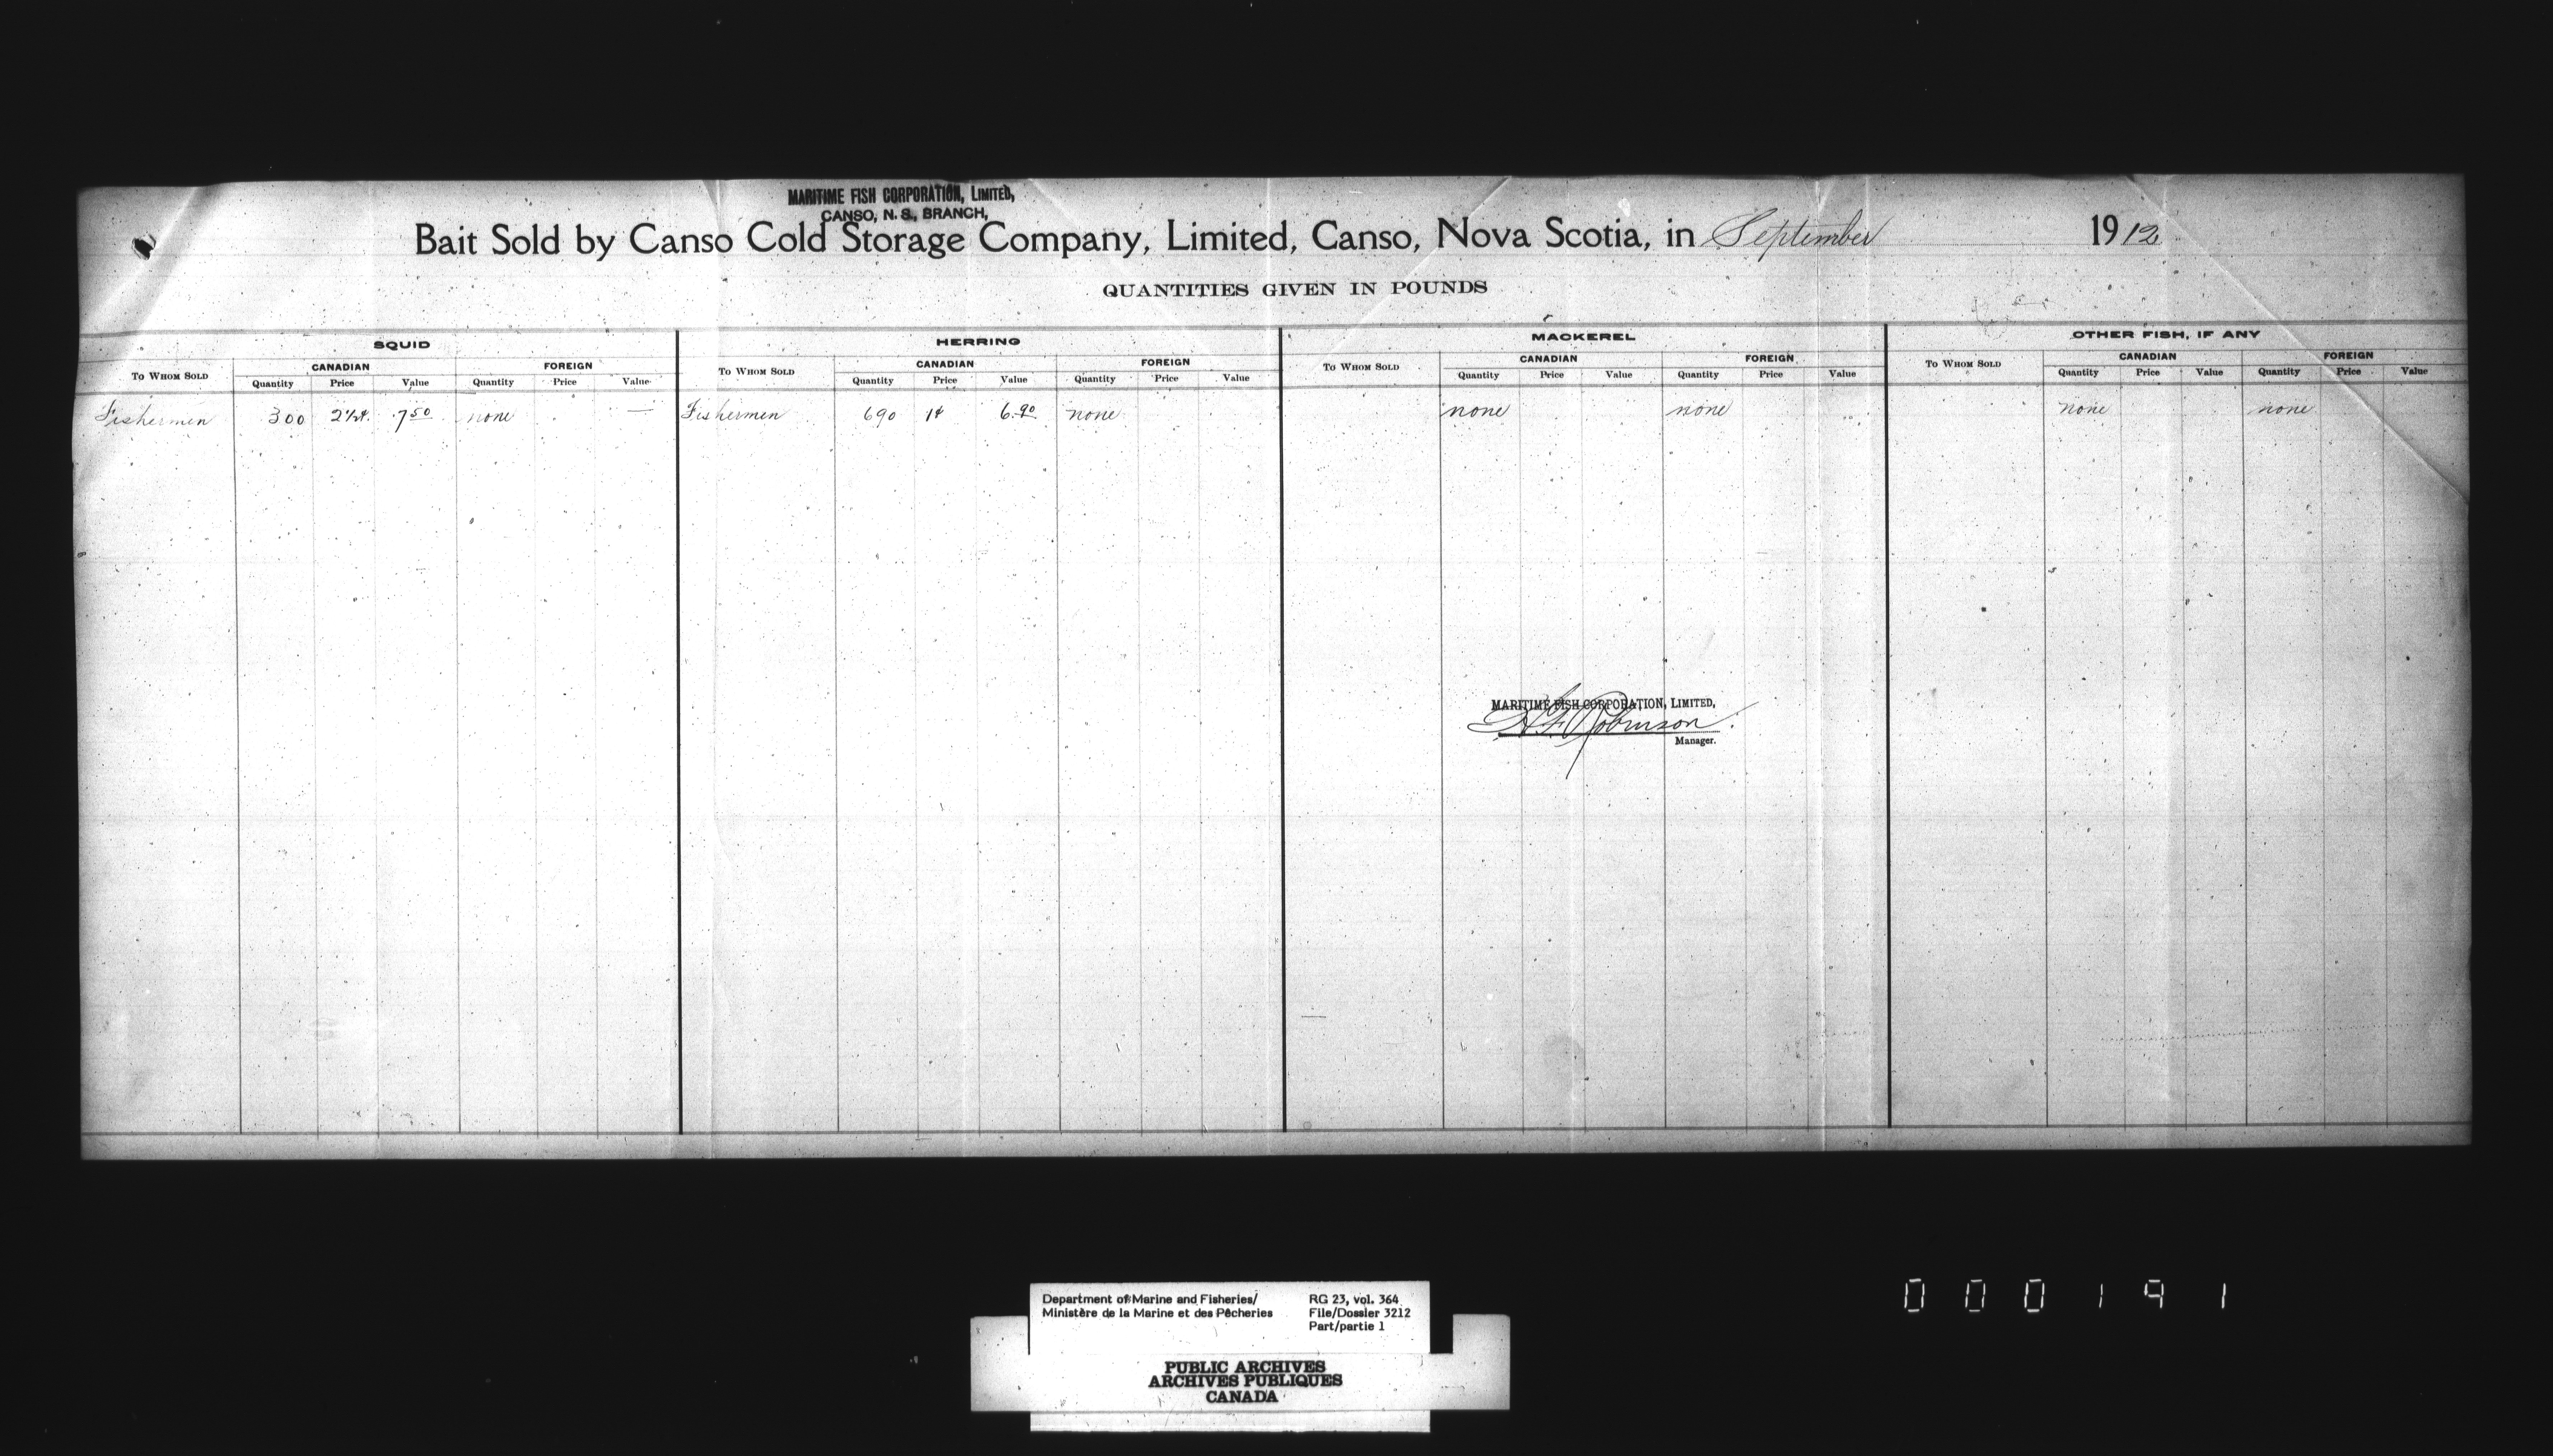 MARITIME FISH CORPORATION, LIMITED,
CANSO, N. S., BRANCH,
Bait Sold by Canso Cold Storage Company, Limited, Canso, Nova Scotia, in September 1912
QUANTITIES GIVEN IN POUNDS
SQUID HERRING MACKEREL OTHER FISH, IF ANY
TO WHOM SOLD CANADIAN FOREIGN TO WHOM SOLD CANADIAN FOREIGN TO WHOM SOLD CANADIAN FOREIGN TO WHOM SOLD CANADIAN FOREIGN
Quantity Price Value Quantity Price Value Quantity Price Value Quantity Price Value Quantity Price Value Quantity Price Value Quantity Price Value Quantity Price Value
Fishermen 300 2½¢ 7.50 none — Fishermen 690 1¢ 6.90 none none none none none
MARITIME FISH CORPORATION, LIMITED,
Robinson
Manager.
000191
Department of Marine and Fisheries/ RG 23, vol. 364
Ministère de la Marine et des Pêcheries File/Dossier 3212
Part/partie 1
PUBLIC ARCHIVES
ARCHIVES PUBLIQUES
CANADA